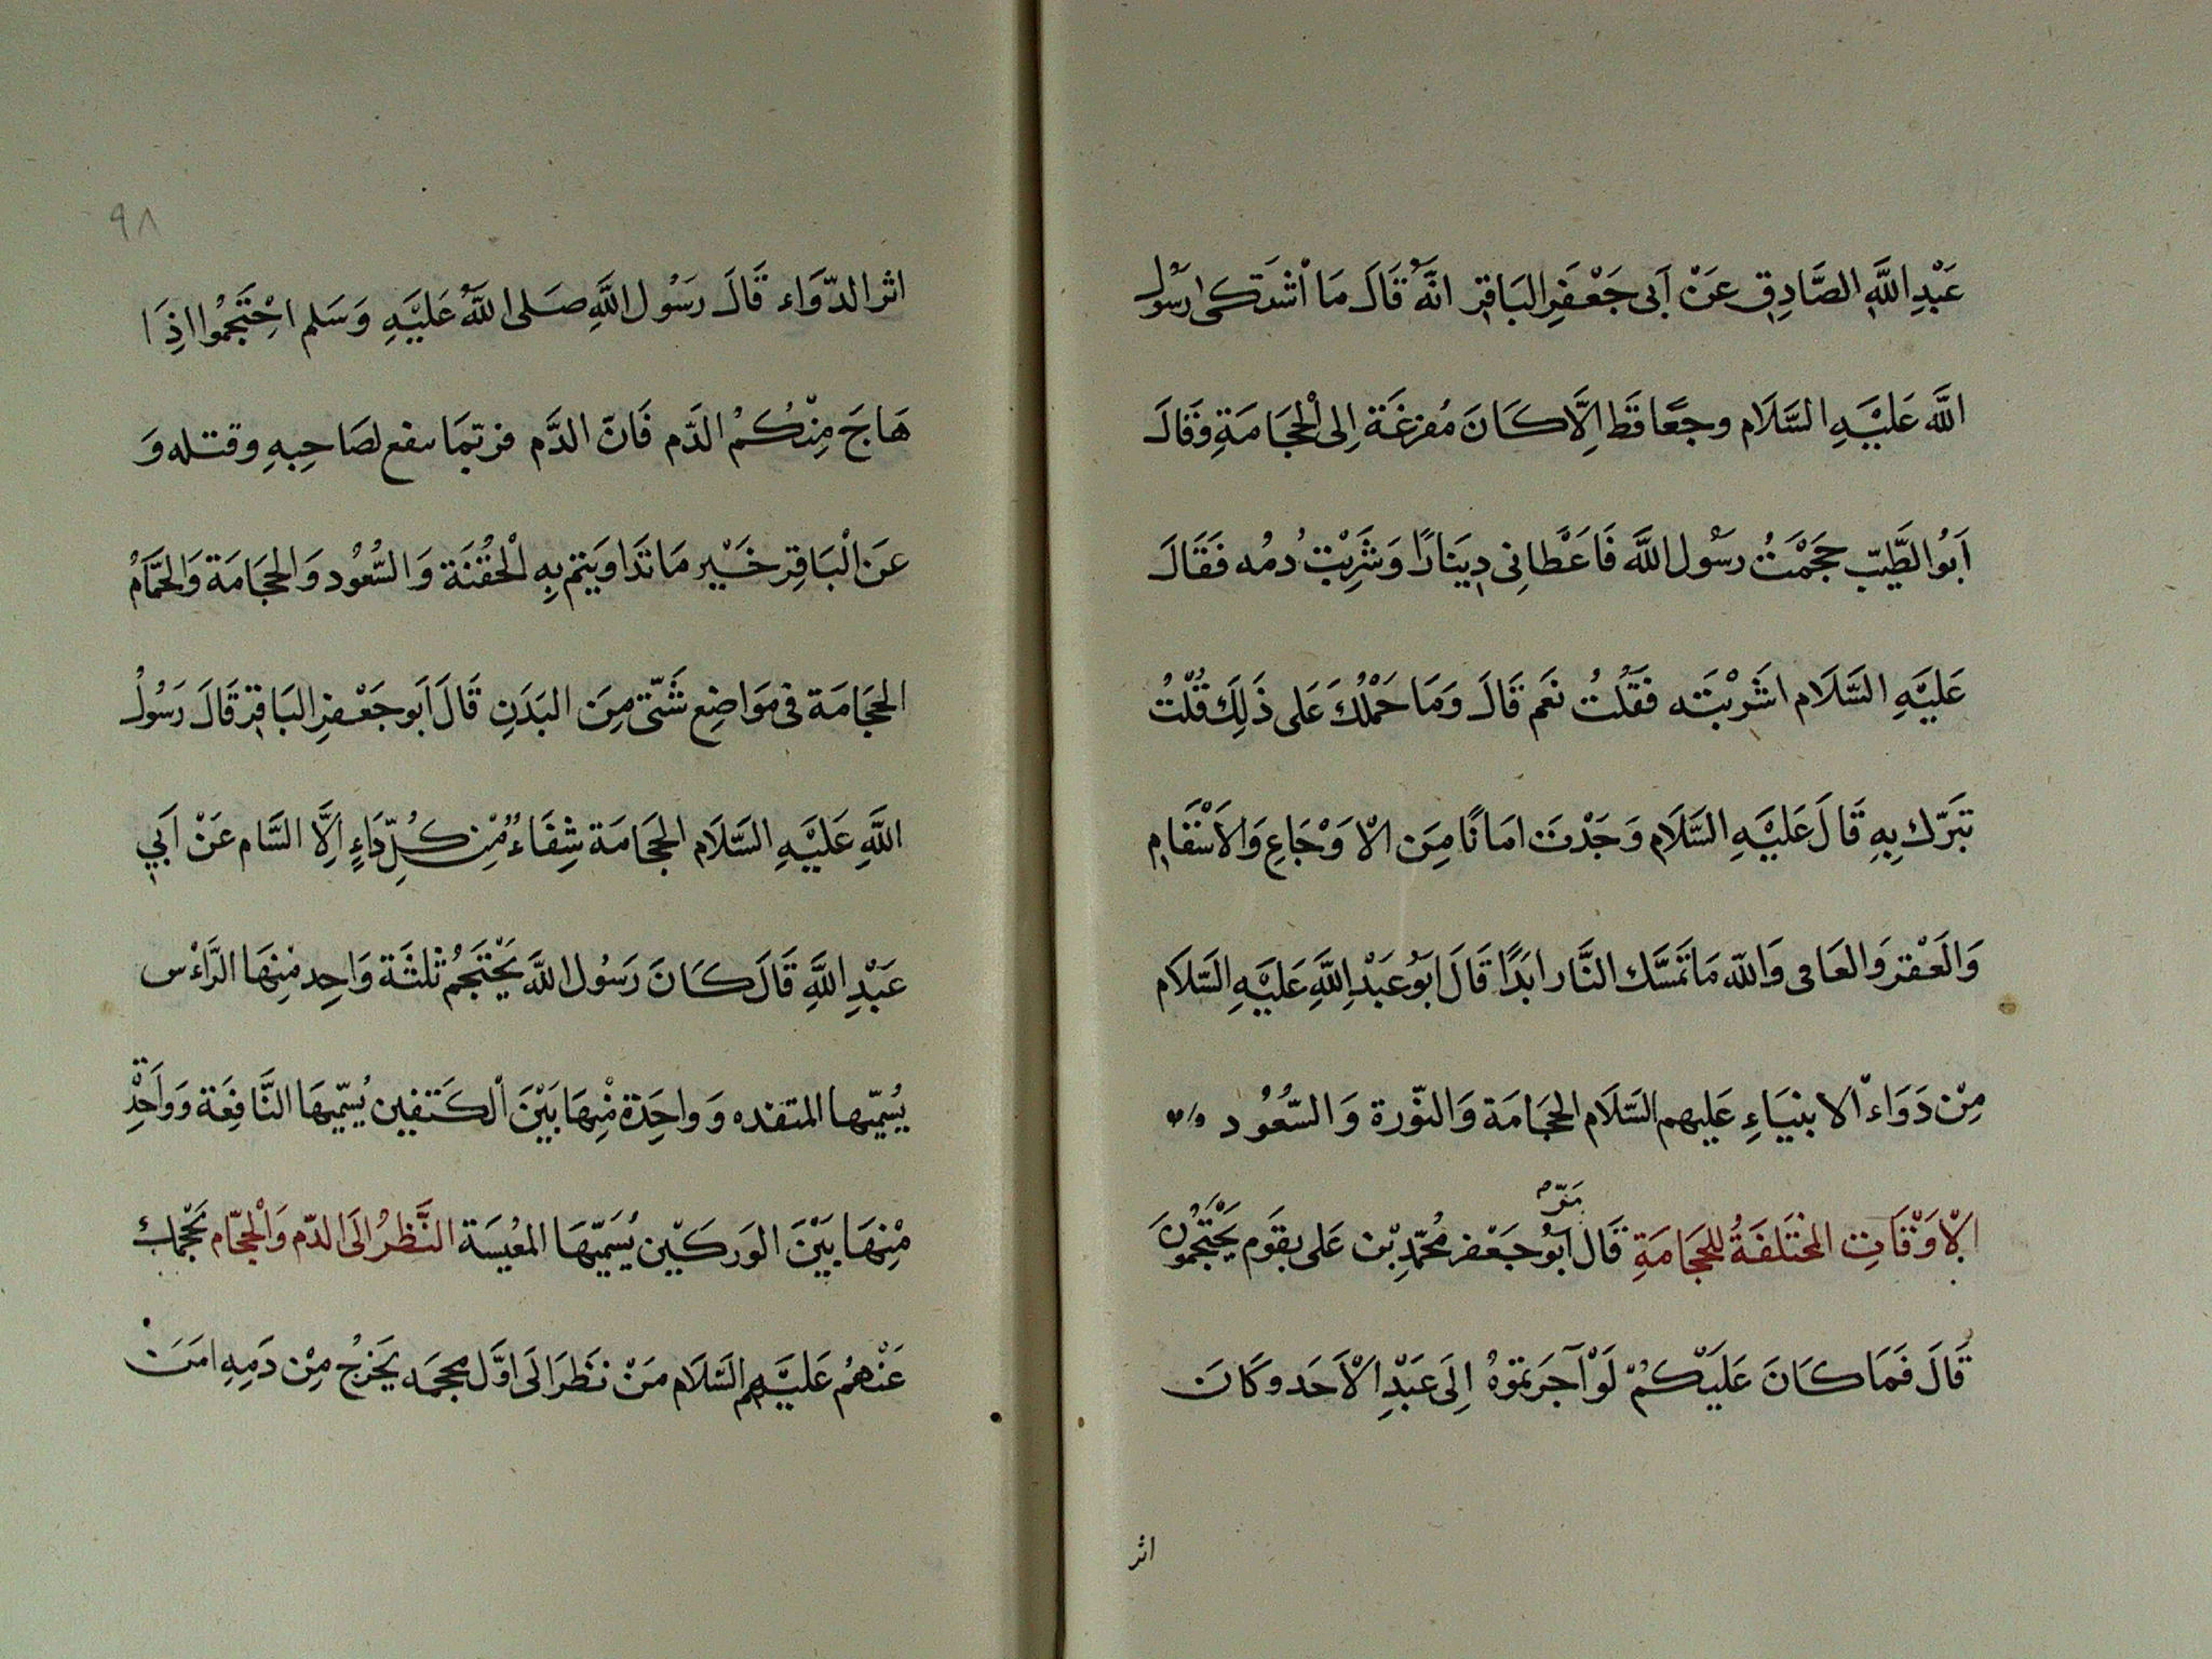 عَبْدِ اللَّهِ الصَّادِقِ عَنْ اَبى جَعْفَرِ البَاقِر انَّهُ قَالَ مَا اْشتَكى رسَوُل
اللَّه عَلَيْهِ السَّلَام وجَعًا قَط اِلَّا كَانَ مُفزغَة اِلى الْحِجَامَةِ وَقَالَ
اَبُو الطَّيّبِ حَجَمْتُ رسَوُل اللَّه فَاَعْطانِى دِينَارًا وَشَرِبْتُ دمُه فَقَالَ
عَلَيْهِ السَّلَام اشَرْبتَه فقَلُتُ نعَم قَالَ وَمَا حَمْلُكَ عَلى ذَلِكَ قُلْتُ
تَبَرّك بِهِ قَالَ عَلَيْهِ السَّلَام وَجَدْتَ امَانًا مِنَ الاْوَجَاعِ وَالاَسْقَامِ
وَالَفْقر وَالعَامى وَاللّه مَا تَمَسَّك النَّار ابَدًا قَالَ ابَوُ عَبْدِ اللَّهِ عَلَيْهِ السَّلَام
مِنْ دَوَاء الانبيَاءِ عَليهم السَّلَام الحجَامَة وَالنّورة وَالسّعُود
الاْوَقَاتِ المخْتَلفَةُ للحجَامَةِ قَال ابَوُ جَعْفر مُحَمّدِ بْن عَلى بقَوم يَحْتَجمُونَ
مَرّ
قَالَ فَمَا كَانَ عَلَيْكُمْ لَوْ آجَرتمّوهُ اِلَى عَبْدِ الاَحَد وكَانَ
اثر
٩٨
اثر الدّوَاء قَالَ رسَوُل اللَّهِ صَلى اللَّهُ عَليَهِ وَسَلم احْتَجمُوا اذِ ا
هَاجَ مِنْكُمْ الدَّم فَانّ الدَّم فربَمَا سفع لصَاحِبهِ وقتله وَ
عَنَ الْبَاقِر خَيْر مَا تَدَاوَيتم بِه الْحُقْنَة وَالسُّعُود وَالحجَامَة وَالحمَّامُ
الحجَامَة فى مَوَاضِع شَتّى مِنَ البَدَنِ قَالَ اَبو جَعْفرِ البَاقِر قَالَ رَسَوُل
اللَّهِ عَلَيْهِ السَّلَام الحجَامَة شِفَاءُ مِن كُلِّ دَاءٍ اِلَّا السَّام عَنْ اَبي
عَبْدِ اللَّهِ قَالَ كَانَ رَسَوُل اللَّه يَحْتَجمُ ثلثَة وَاحِد مْنِهَا الرَّاءْس
يُسمّيها المتقده وَ واحِدَة مْنِهَا بَيْنَ الكَتفين يُسمّيهَا النَّافِعَة وَ وَاحَدِة
مْنِهَا بَيْنَ الوَركَيْن يُسَمّيهَا المعْيسَة النَّظرُ الَى الدّم وَالْحجّام يَحْجُمكُ
عَنْهمُ عَلَيهِم السَّلَام مَنْ نَظَرَ الَى اوّل محجَمه يَخرجُ مِنْ دَمِهِ امَنَ